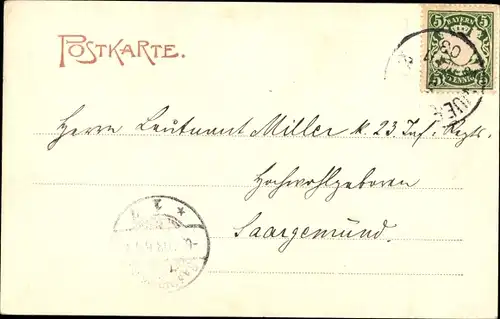 POSTKARTE.
5 BAYERN 5
5 PFENNIG 5
03
Herrn Leutnant Miller k. 23. Inf. Regts.
Hochwohlgeboren
Saargemünd.